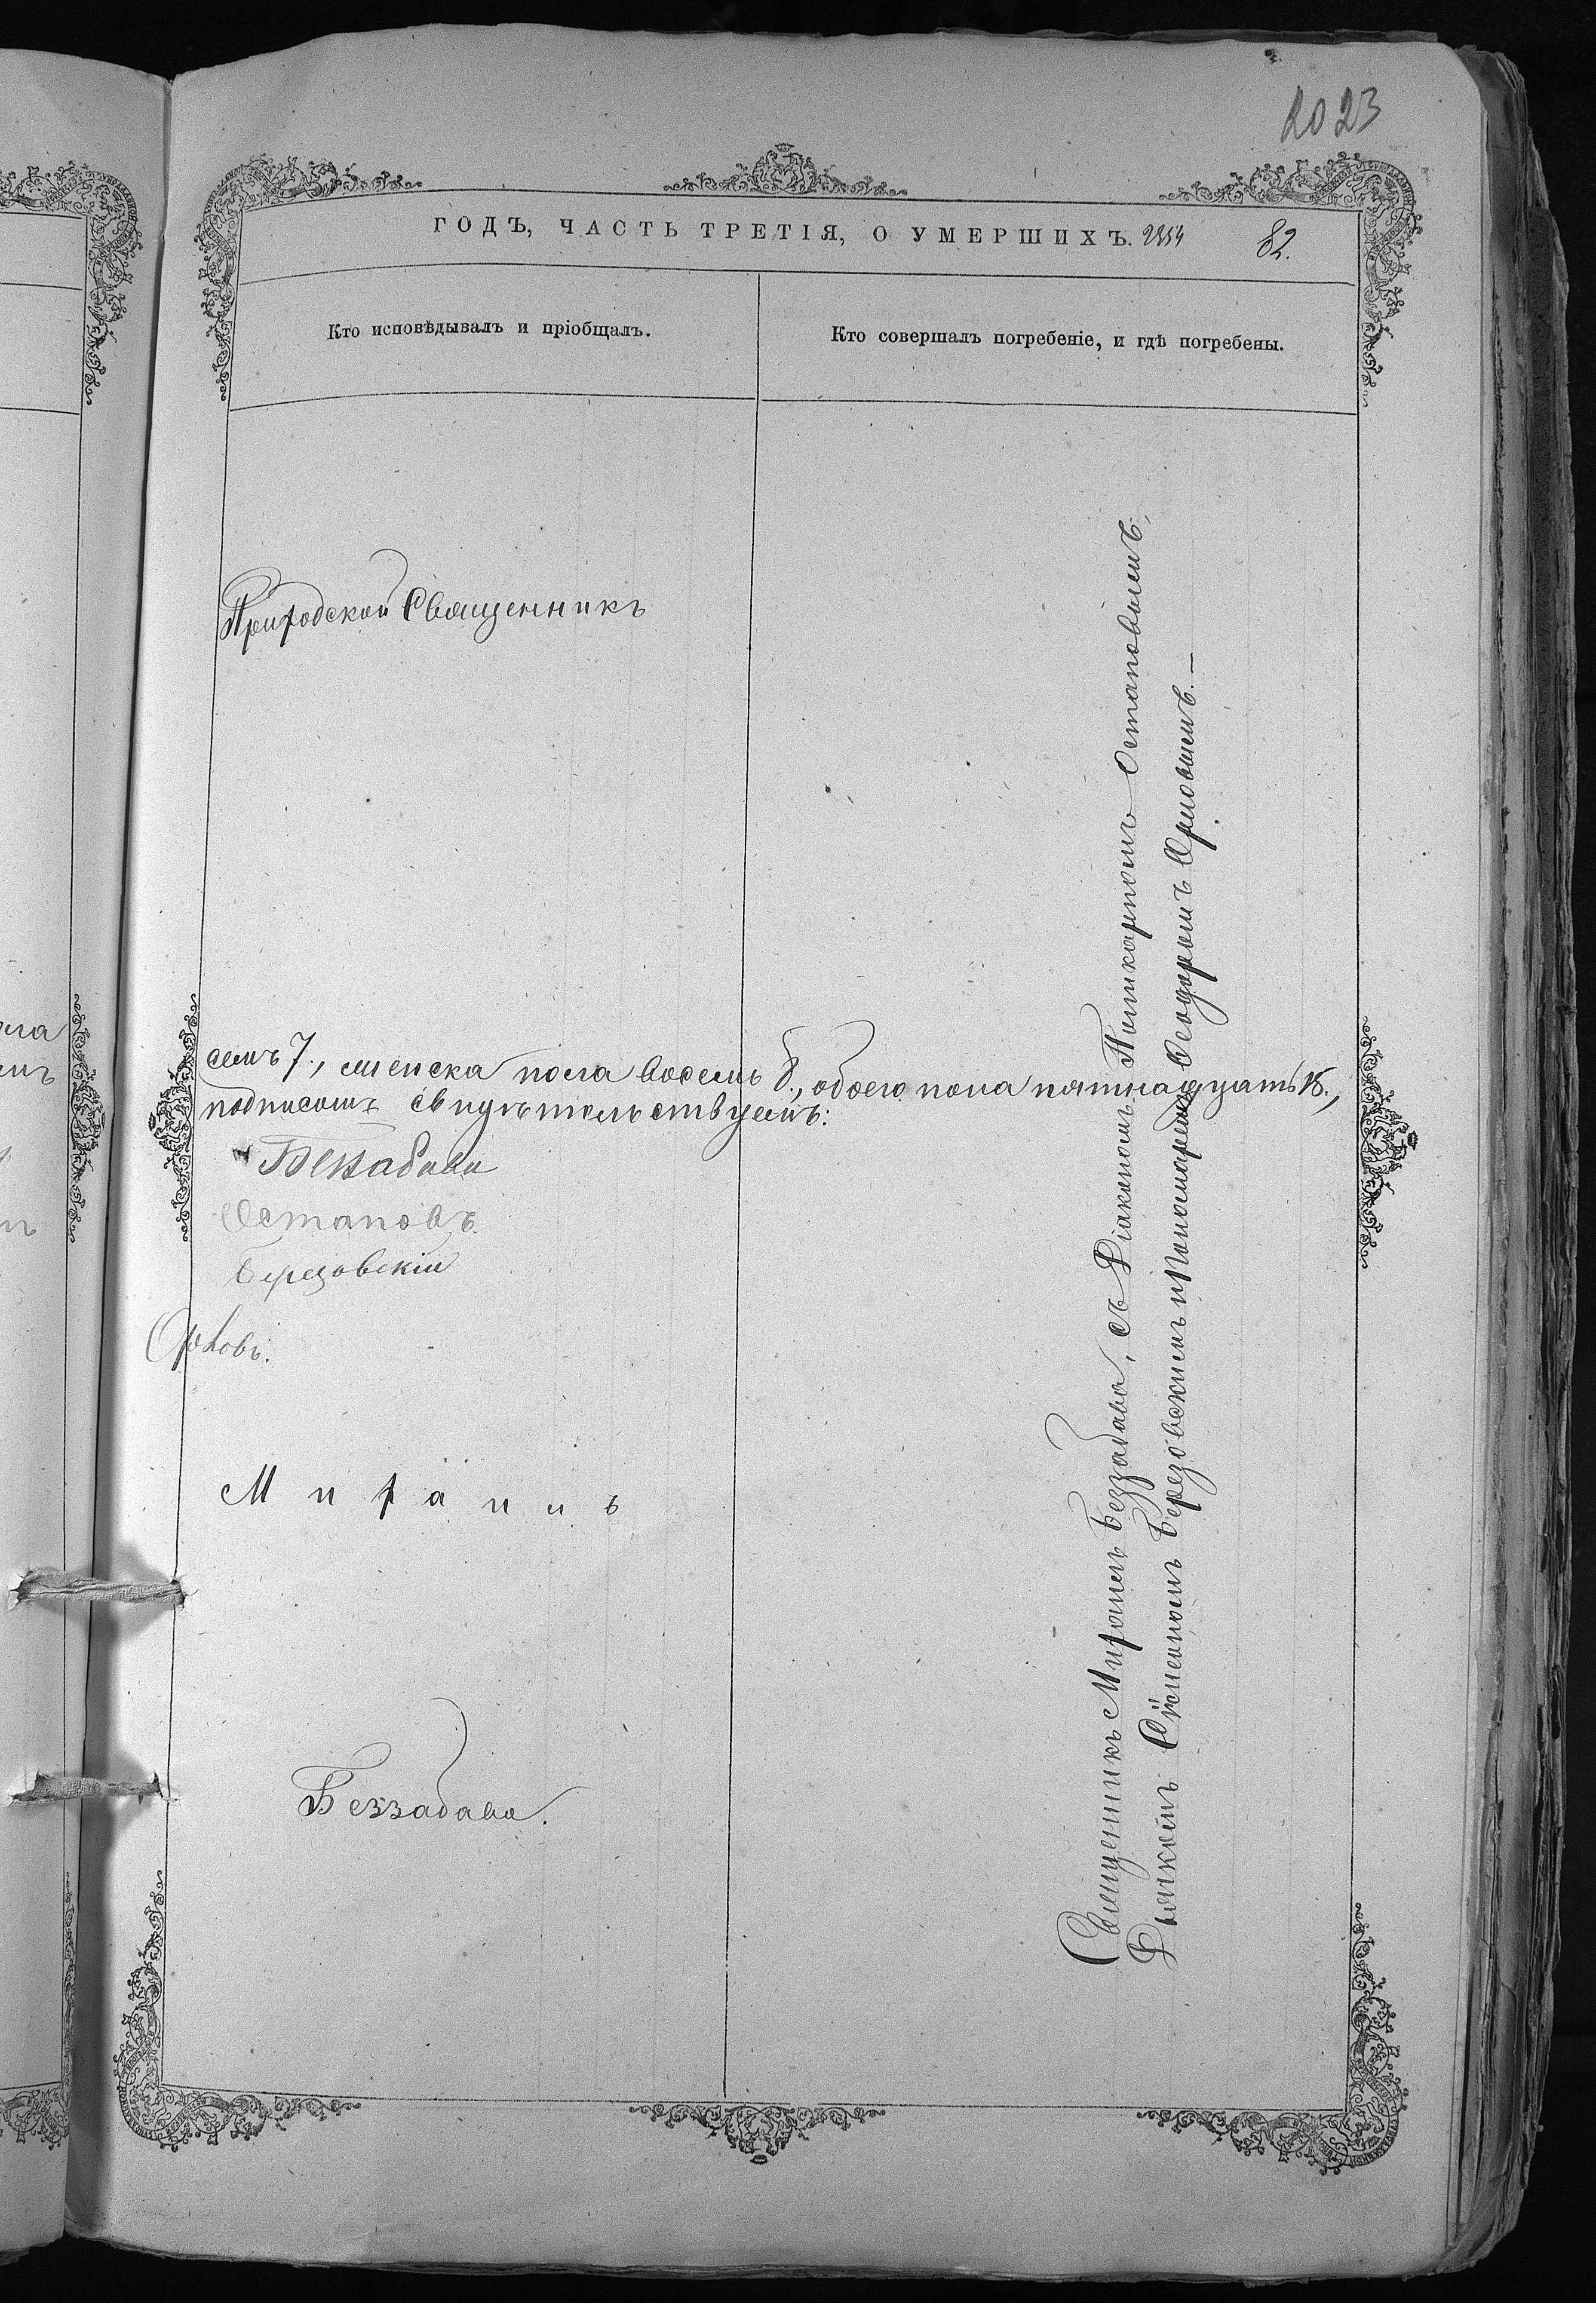 2023
ГОДЪ, ЧАСТЬ ТРЕТІЯ, О УМЕРШИХЪ. 2354
82.
Кто исповѣдывалъ и пріобщалъ.
Кто совершалъ погребеніе, и гдѣ погребены.
Приходской Священникъ
семъ 7., женска пола восемь 8., обоего пола пятнадцать 15.,
подписомъ свидѣтельствуемъ:
Беззабава
Остаповъ.
Березовскій
Орловъ.
Михаилъ
Беззабава.
Священникъ Михаилъ Беззабава, съ Діакономъ Поликарпомъ Остаповымъ,
Дьякомъ Сѵмеономъ Березовскимъ и Пономаремъ Ѳеодоромъ Орловымъ.—